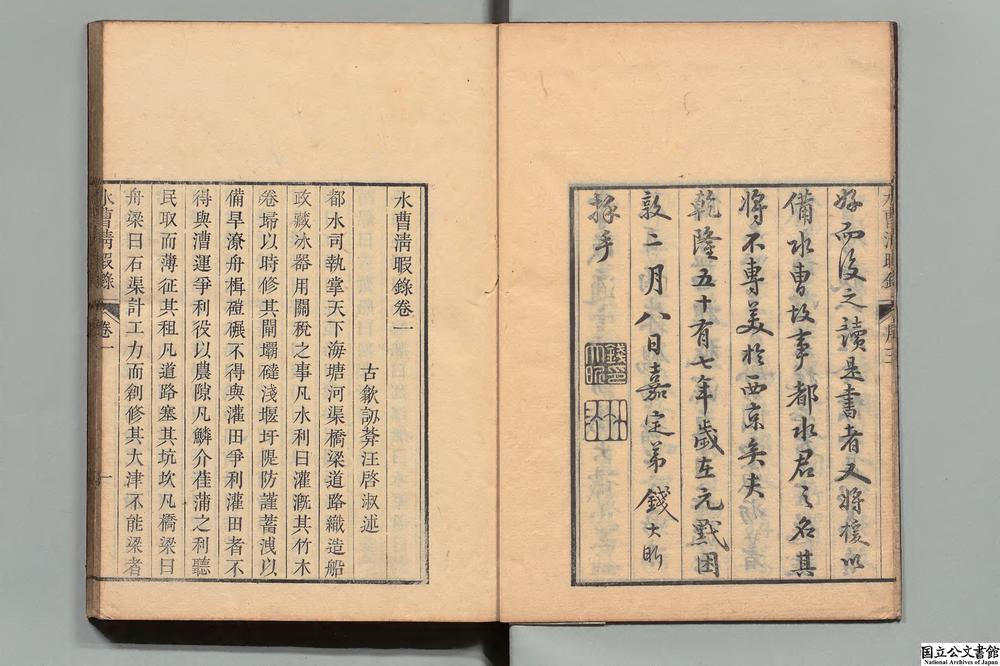 水曹清暇錄
序三
好而後之讀是書者又將援以
備水曹故事都水君之名其
將不專美於西京矣夫
乾隆五十有七年歲在元黓困
敦二月八日嘉定弟錢大昕
拜手
錢大昕印
水曹清暇錄卷一
古歙訒葊汪啓淑述
都水司執掌天下海塘河渠橋梁道路織造船
政藏冰器用關稅之事凡水利曰灌漑其竹木
卷埽以時修其閘壩礆淺堰圩隄防謹蓄洩以
備旱潦舟楫磑碾不得與灌田爭利灌田者不
得與漕運爭利役以農隙凡鱗介萑蒲之利聽
民取而薄征其租凡道路塞其坑坎凡橋梁曰
舟梁曰石渠計工力而創修其大津不能梁者
水曹清暇錄
卷一
一
国立公文書館
National Archives of Japan